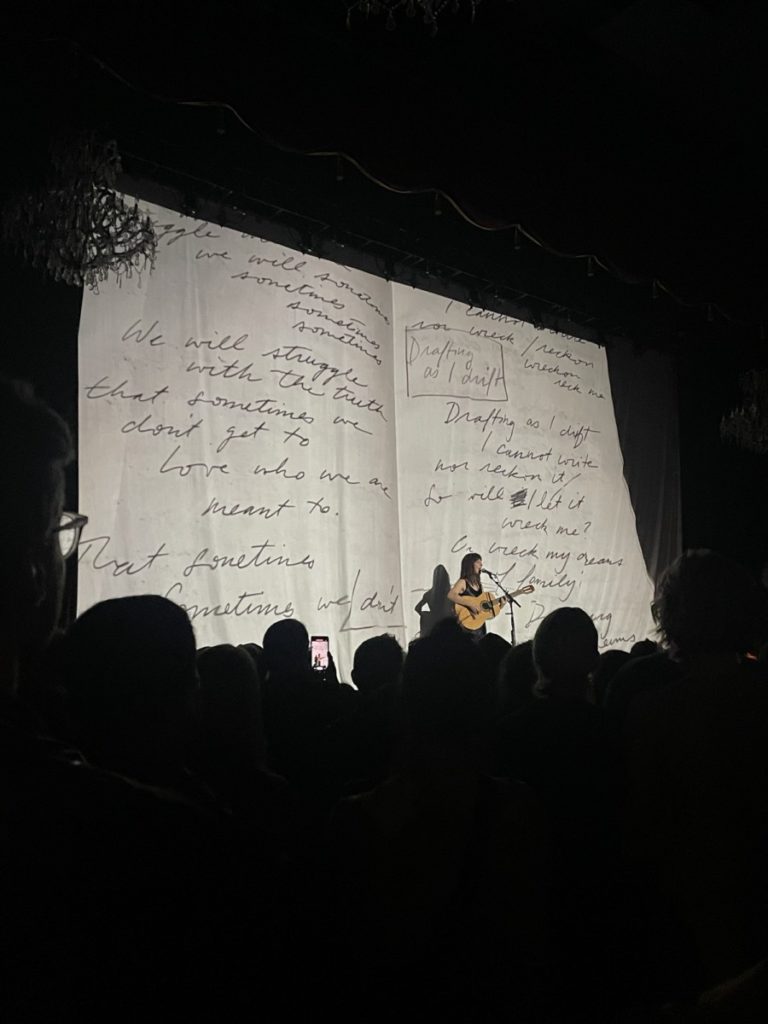 we will sometimes
sometimes
sometimes
sometimes
sometimes
We will struggle
with the truth
that sometimes we
don't get to
Love who we are
meant to.
That sometimes
Sometimes we don't
I cannot write
nor wreck / reckon
wreckon
reck me
Drafting
as I drift
Drafting as I drift
I cannot write
nor reckon it /
So will I let it
wreck me?
Or wreck my dreams
of family;